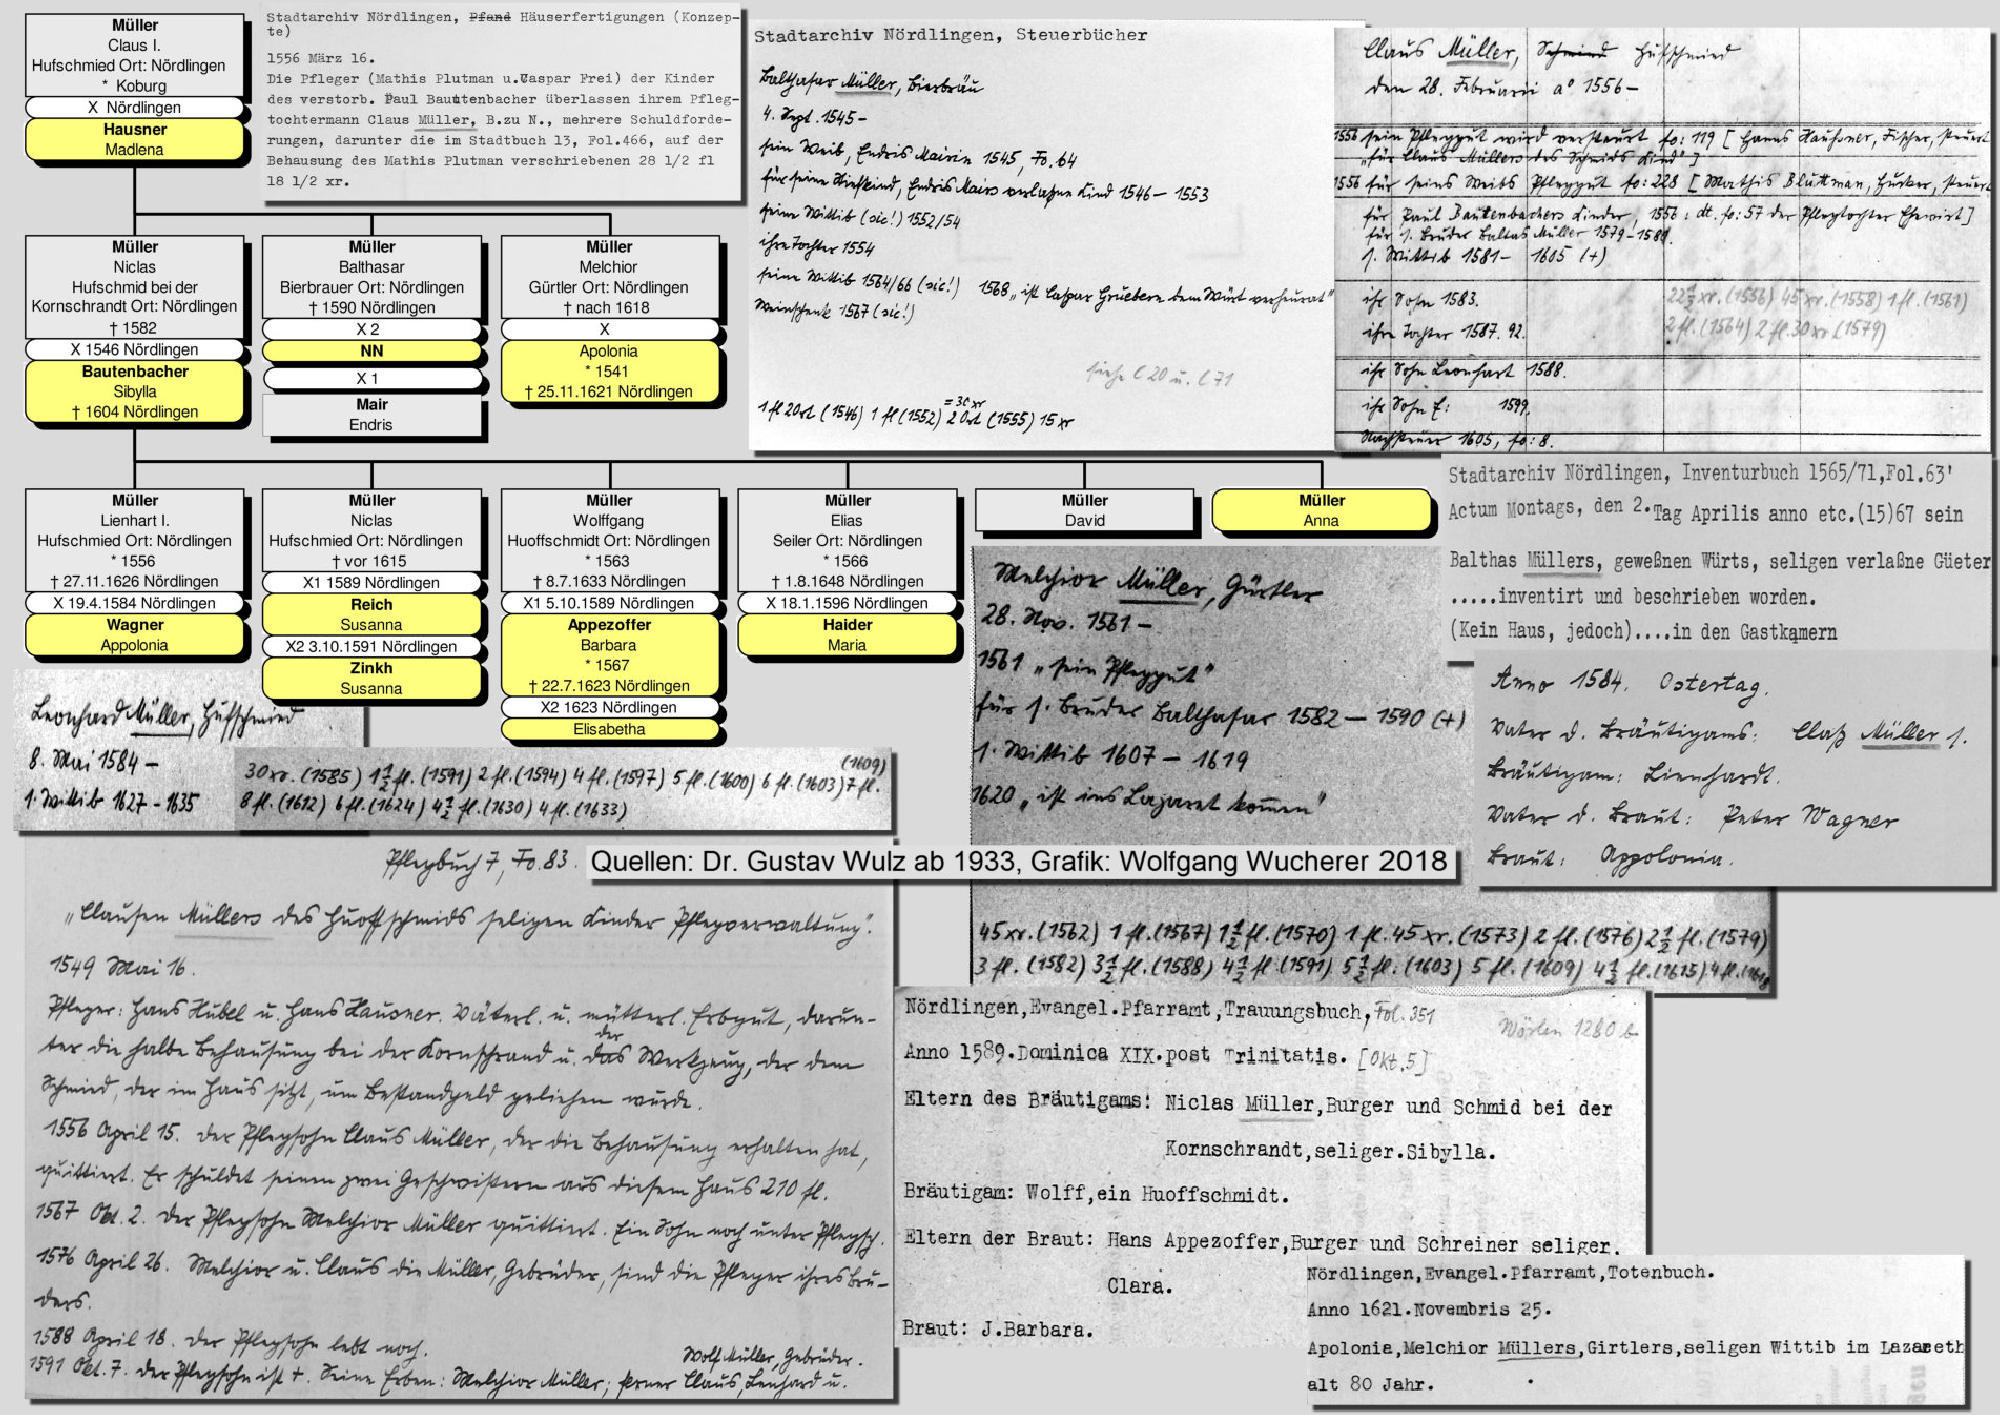 Müller
Claus I.
Hufschmied Ort: Nördlingen
* Koburg
X Nördlingen
Hausner
Madlena
Stadtarchiv Nördlingen, Pfand Häuserfertigungen (Konzep-
te)
1556 März 16.
Die Pfleger (Mathis Plutman u.Caspar Frei) der Kinder
des verstorb. Paul Bautenbacher überlassen ihrem Pfleg-
tochtermann Claus Müller, B.zu N., mehrere Schuldforde-
rungen, darunter die im Stadtbuch 13, Fol.466, auf der
Behausung des Mathis Plutman verschriebenen 28 1/2 fl
18 1/2 xr.
Stadtarchiv Nördlingen, Steuerbücher
Balthasar Müller, Bierbräu
4. Sept. 1545–
sein Weib, Endris Mairin 1545, Fo. 64
für seine Stiefkind, Endris Mairs verlaßne Kind 1546 – 1553
seine Wittib (sic!) 1552/54
ihre Tochter 1554
seine Wittib 1564/66 (sic!) 1568 „ist Caspar Gruebern dem Würt verheurat"
Weinschenk 1567 (sic!)
siehe C 20 u. C 71
= 30 xr
1 fl 20rt (1546) 1 fl (1552) 2 Ort (1555) 15 xr
Claus Müller, Schmied Hufschmied
den 28. Februarii a° 1556 –
1556 sein Pfleggut wird versteuert fo: 119 [ Hanns Haußner, Fischer, steuert
„für Claus Müllers des Schmids Kind"]
1556 für seins Weibs Pfleggut fo: 228 [ Mathis Bluttman, Hucker, steuert
für Paul Bautenbachers Kinder, 1556: dt. fo: 57 der Pflegtochter Ehewirt]
für s. Bruder Baltas Müller 1579 – 1588.
s. Wittib 1581 – 1605 (+)
ihr Sohn 1583.
22½ xr. (1556) 45 xr. (1558) 1 fl. (1561)
2 fl. (1564) 2 fl. 30 xr (1579)
ihre Tochter 1587. 92.
ihr Sohn Leonhart 1588.
ihr Sohn E: 1599.
Nachsteuer 1605, fo: 8.
Müller
Niclas
Hufschmid bei der
Kornschrandt Ort: Nördlingen
† 1582
X 1546 Nördlingen
Bautenbacher
Sibylla
† 1604 Nördlingen
Müller
Balthasar
Bierbrauer Ort: Nördlingen
† 1590 Nördlingen
X 2
NN
X 1
Mair
Endris
Müller
Melchior
Gürtler Ort: Nördlingen
† nach 1618
X
Apolonia
* 1541
† 25.11.1621 Nördlingen
Müller
Lienhart I.
Hufschmied Ort: Nördlingen
* 1556
† 27.11.1626 Nördlingen
X 19.4.1584 Nördlingen
Wagner
Appolonia
Müller
Niclas
Hufschmied Ort: Nördlingen
† vor 1615
X1 1589 Nördlingen
Reich
Susanna
X2 3.10.1591 Nördlingen
Zinkh
Susanna
Müller
Wolffgang
Huoffschmidt Ort: Nördlingen
* 1563
† 8.7.1633 Nördlingen
X1 5.10.1589 Nördlingen
Appezoffer
Barbara
* 1567
† 22.7.1623 Nördlingen
X2 1623 Nördlingen
Elisabetha
Müller
Elias
Seiler Ort: Nördlingen
* 1566
† 1.8.1648 Nördlingen
X 18.1.1596 Nördlingen
Haider
Maria
Müller
David
Müller
Anna
Stadtarchiv Nördlingen, Inventurbuch 1565/71,Fol.63'
Actum Montags, den 2.Tag Aprilis anno etc.(15)67 sein
Balthas Müllers, geweßnen Würts, seligen verlaßne Güeter
.....inventirt und beschrieben worden.
(Kein Haus, jedoch)....in den Gastkamern
Melchior Müller, Gürtler
28. Nov. 1561 –
1561 „sein Pfleggut"
für s. Bruder Balthasar 1582 – 1590 (+)
s. Wittib 1607 – 1619
1620 „ist ins Lazaret komen"
45 xr. (1562) 1 fl. (1567) 1½ fl. (1570) 1 fl. 45 xr. (1573) 2 fl. (1576) 2½ fl. (1579)
3 fl. (1582) 3½ fl. (1588) 4½ fl. (1591) 5½ fl. (1603) 5 fl. (1609) 4½ fl. (1615) 4 fl.
Anno 1584. Ostertag.
Vater d. Bräutigams: Claß Müller s.
Bräutigam: Lienhardt.
Vater d. Braut: Peter Wagner
Braut: Appolonia.
Leonhard Müller, Hufschmied
8. Mai 1584 –
s. Wittib 1627 – 1635
30 xr. (1585) 1½ fl. (1591) 2 fl. (1594) 4 fl. (1597) 5 fl. (1600) 6 fl. (1603) 7 fl. (1609)
8 fl. (1612) 6 fl. (1624) 4½ fl. (1630) 4 fl. (1633)
Quellen: Dr. Gustav Wulz ab 1933, Grafik: Wolfgang Wucherer 2018
Pflegbuch 7, Fo. 83.
„Clausen Müllers des Huoffschmids seligen Kinder Pflegverwaltung".
1549 Mai 16.
Pfleger: Hans Hübel u. Hans Hausner. Väterl. u. mütterl. Erbgut, darun-
ter die halbe Behausung bei der Kornschrand u. das der Werkzeug, der dem
Schmied, der im Haus sitzt, um Bestandgeld geliehen wurde.
1556 April 15. Der Pflegsohn Claus Müller, der die Behausung erhalten hat,
quittiert. Er schuldet seinen zwei Geschwistern aus diesem Haus 210 fl.
1567 Okt. 2. Der Pflegsohn Melchior Müller quittiert. Ein Sohn noch unter Pflegsch.
1576 April 26. Melchior u. Claus die Müller, Gebrüder, sind die Pfleger ihres Bru-
ders.
1588 April 18. Der Pflegsohn lebt noch.
1591 Okt. 7. Der Pflegsohn ist +. Seine Erben: Melchior Müller; ferner Claus, Lenhard u.
Wolf Müller, Gebrüder.
Nördlingen,Evangel.Pfarramt,Trauungsbuch, Fol. 351
Wörlen 1280 b
Anno 1589.Dominica XIX.post Trinitatis. [Okt.5]
Eltern des Bräutigams: Niclas Müller,Burger und Schmid bei der
Kornschrandt,seliger.Sibylla.
Bräutigam: Wolff,ein Huoffschmidt.
Eltern der Braut: Hans Appezoffer,Burger und Schreiner seliger.
Clara.
Braut: J.Barbara.
Nördlingen,Evangel.Pfarramt,Totenbuch.
Anno 1621.Novembris 25.
Apolonia,Melchior Müllers,Girtlers,seligen Wittib im Lazareth
alt 80 Jahr.